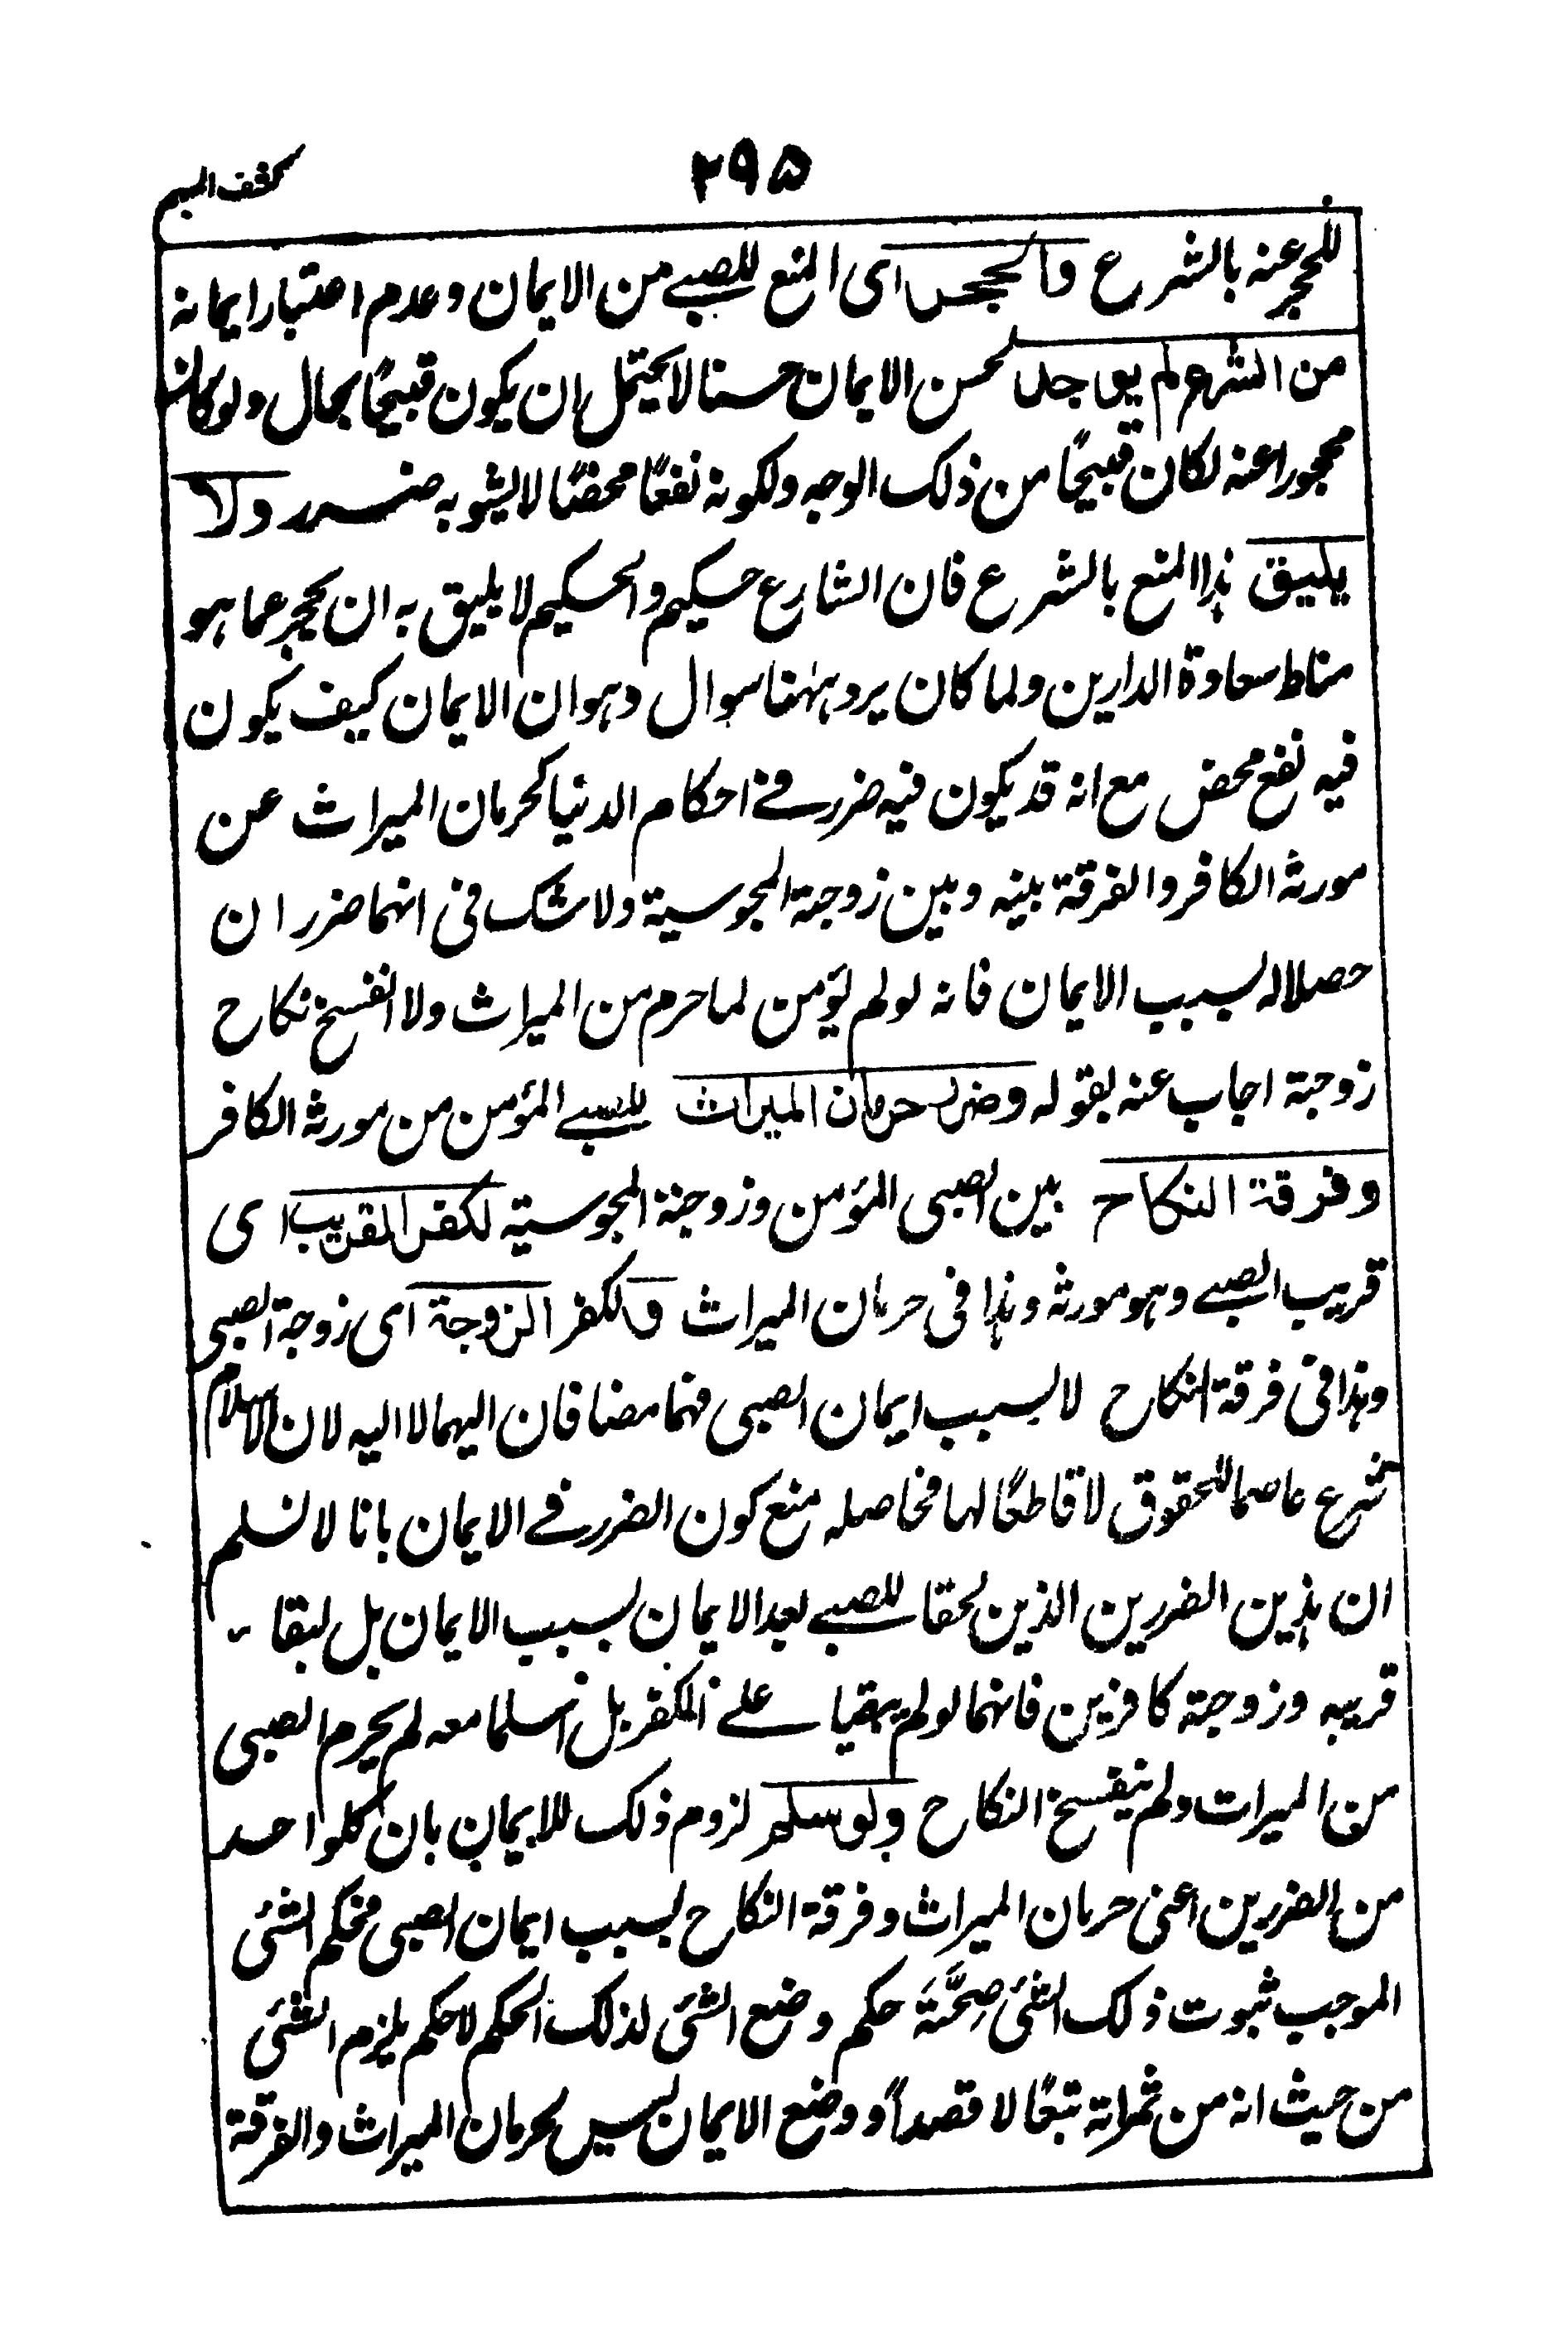 ٢٩٥
كشف المبهم
للحجر عنه بالشرع والحجر اى المنع للصبي من الايمان وعدم اعتبار ايمانه
من الشرع لم يوجد لحسن الايمان حسنا لا يحتمل ان يكون قبيحًا بحال ولو كان
محجورا عنه لكان قبيحًا من ذلك الوجه ولكونه نفعًا محضًا لا يشوبه ضرر ولا
يليق هذا المنع بالشرع فان الشارع حكيم والحكيم لا يليق به ان يحجر عما هو
مناط سعادة الدارين ولما كان يرد ههنا سوال وهو ان الايمان كيف يكون
فيه نفع محض مع انه قد يكون فيه ضرر في احكام الدنيا كحرمان الميراث عن
مورثه الكافر والفرقة بينه وبين زوجته المجوسية ولا شك في انهما ضرر ان
حصلا له بسبب الايمان فانه لو لم يؤمن لما حرم من الميراث ولا انفسخ نكاح
زوجته اجاب عنه بقوله وضرر حرمان الميراث للصبي المؤمن من مورثه الكافر
وفرقة النكاح بين الصبي المؤمن وزوجته المجوسية لكفر القريب اى
قريب الصبي وهو مورثه وهذا في حرمان الميراث و لكفر الزوجة اى زوجة الصبي
وهذا في فرقة النكاح لا بسبب ايمان الصبي فهما مضافان اليهما لا اليه لان الاسلام
شرع عاصما للحقوق لا قاطعًا لها فحاصله منع كون الضرر في الايمان بانا لا نسلم
ان هذين الضررين الذين لحقا للصبي بعد الايمان بسبب الايمان بل لبقاء
قريبه وزوجته كافرين فانهما لو لم يبقيا على الكفر بل اسلما معه لم يحرم الصبي
من الميراث ولم ينفسخ النكاح ولو سلم لزوم ذلك للايمان بان كلواحد
من الضررين اعنى حرمان الميراث وفرقة النكاح بسبب ايمان الصبي فحكم الشئ
الموجب ثبوت ذلك الشئ صِحَّتَه حكم وضع الشئ لذلك الحكم لا حكم يلزم الشئ
من حيث انه من ثمراته تبعًا لا قصداً و وضع الايمان ليس لحرمان الميراث والفرقة